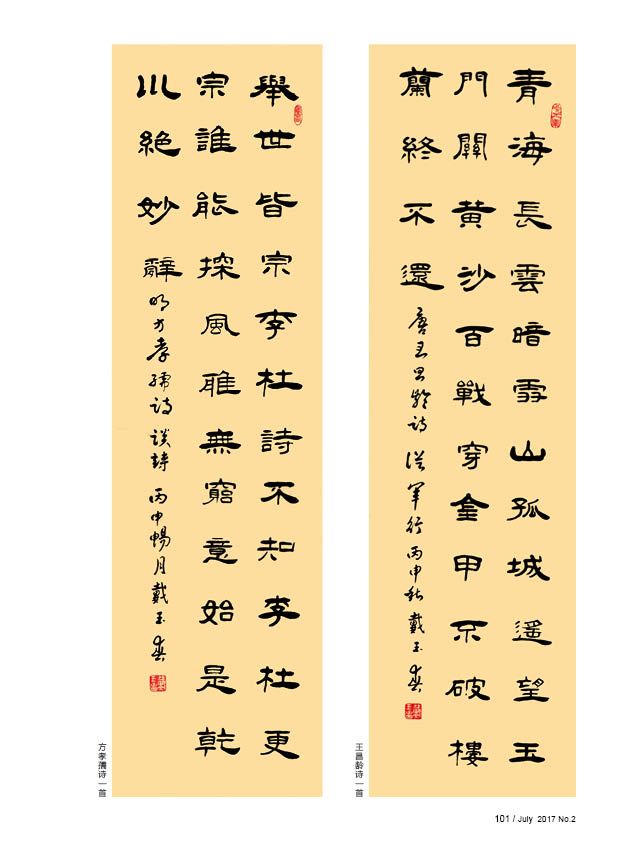 青海長雲暗雪山孤城遥望玉
門關黄沙百戰穿金甲不破樓
蘭終不還 唐王昌齡诗 從軍行 丙申秋 戴玉
王昌龄诗一首
舉世皆宗李杜詩不知李杜更
宗誰能探風雅無窮意始是乾
川絶妙辭 明方孝孺诗 談詩 丙申暢月戴玉
方孝孺诗一首
101 / July 2017 No.2